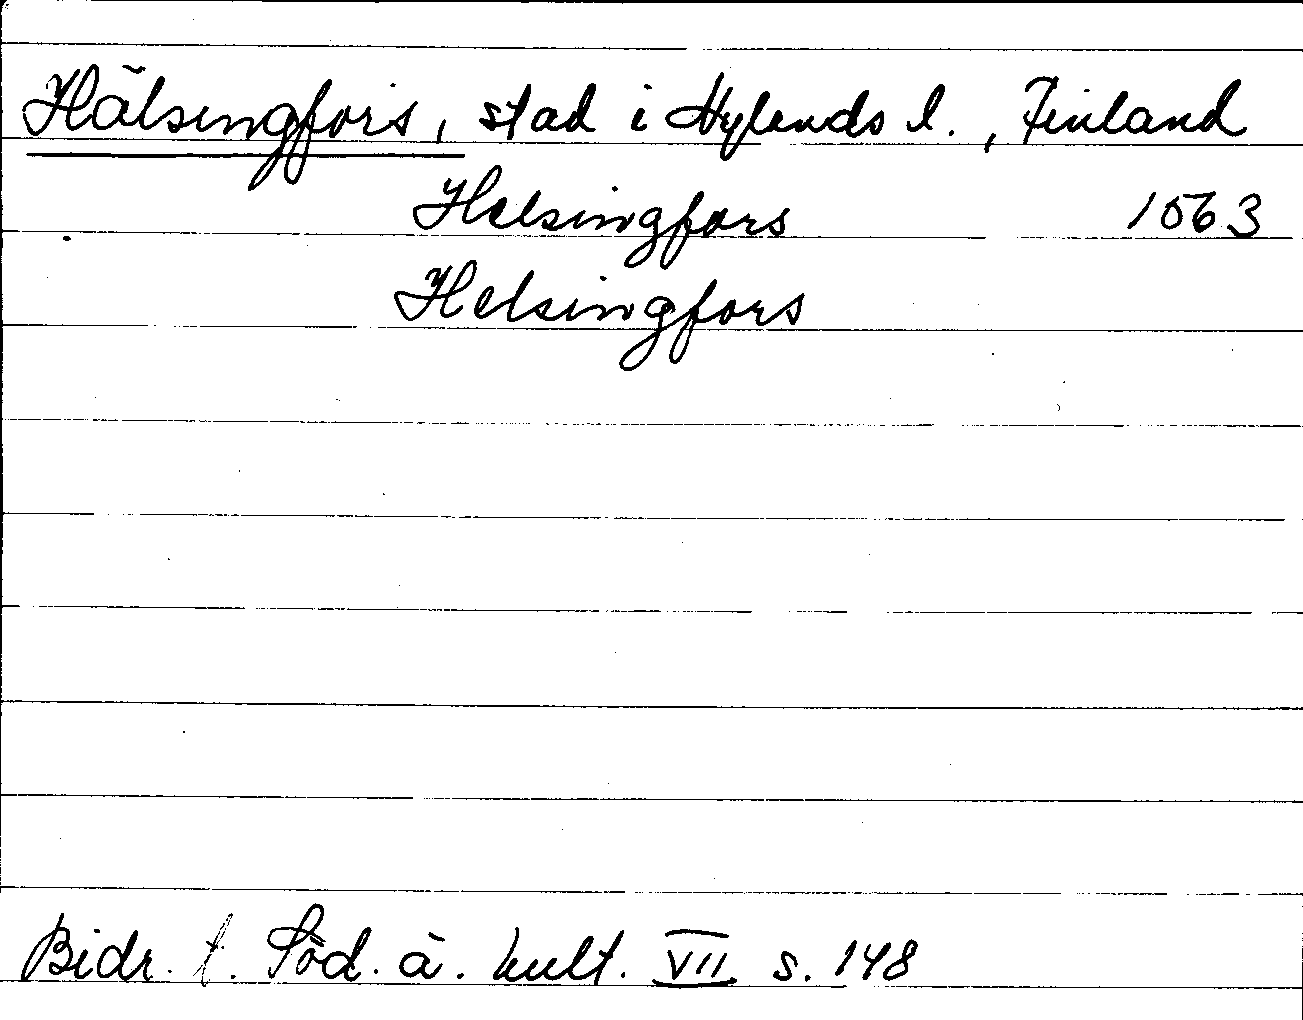 Hälsingfors, stad i Nylands l., Finland
Helsingfors 1563
Helsingfors
Bidr. t. Söd. ä. kult. VII s. 148